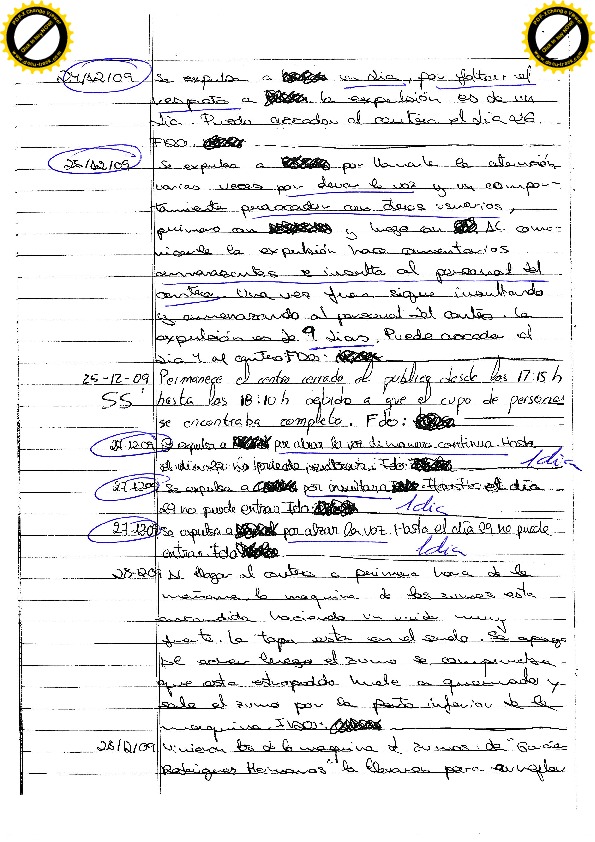 24/12/09 Se expulsa a un dia, por faltar el
respeto a la expulsión es de un
dia. Puede acceder al centro el dia 26
FDO:
25/12/09 Se expulsa a por llamarle la atención
varias veces por elevar la voz y un compor-
tamiento provocador con otros usuarios,
primero con y luego con AC. comu-
nicarle la expulsión hace comentarios
amenazantes e insulta al personal del
centro. Una vez fuera sigue insultando
y amenazando al personal del centro. La
expulsión es de 9 dias. Puede acceder el
dia 4 al centro FDO:
25-12-09 Permanece el centro cerrado al publico desde las 17:15 h
SS: hasta las 18:10 h debido a que el cupo de personas
se encontraba completo. Fdo:
27.12.09 Se expulsa a por alzar la voz de manera continua. Hasta
el dia no puede Fdo: 1 dia
27.12.09 Se expulsa a por insultar a Hasta el día
29 no puede entrar Fdo: 1 dia
27.12.09 Se expulsa a por alzar la voz. Hasta el día 29 no puede
entrar. Fdo 1 dia
28-12-09 Al llegar al centro a primera hora de la
mañana la maquina de los zumos esta
encendida haciendo un ruido muy
fuerte. La tapa esta en el suelo. Se apaga
luego el zumo se comprueba
que esta estropeado huele a quemado y
sale el zumo por la parte inferior de la
maquina. FDO:
28/12/09 Vinieron los de la maquina d zumos de "
Rodriguez Hermanos" la llevaron para arreglar